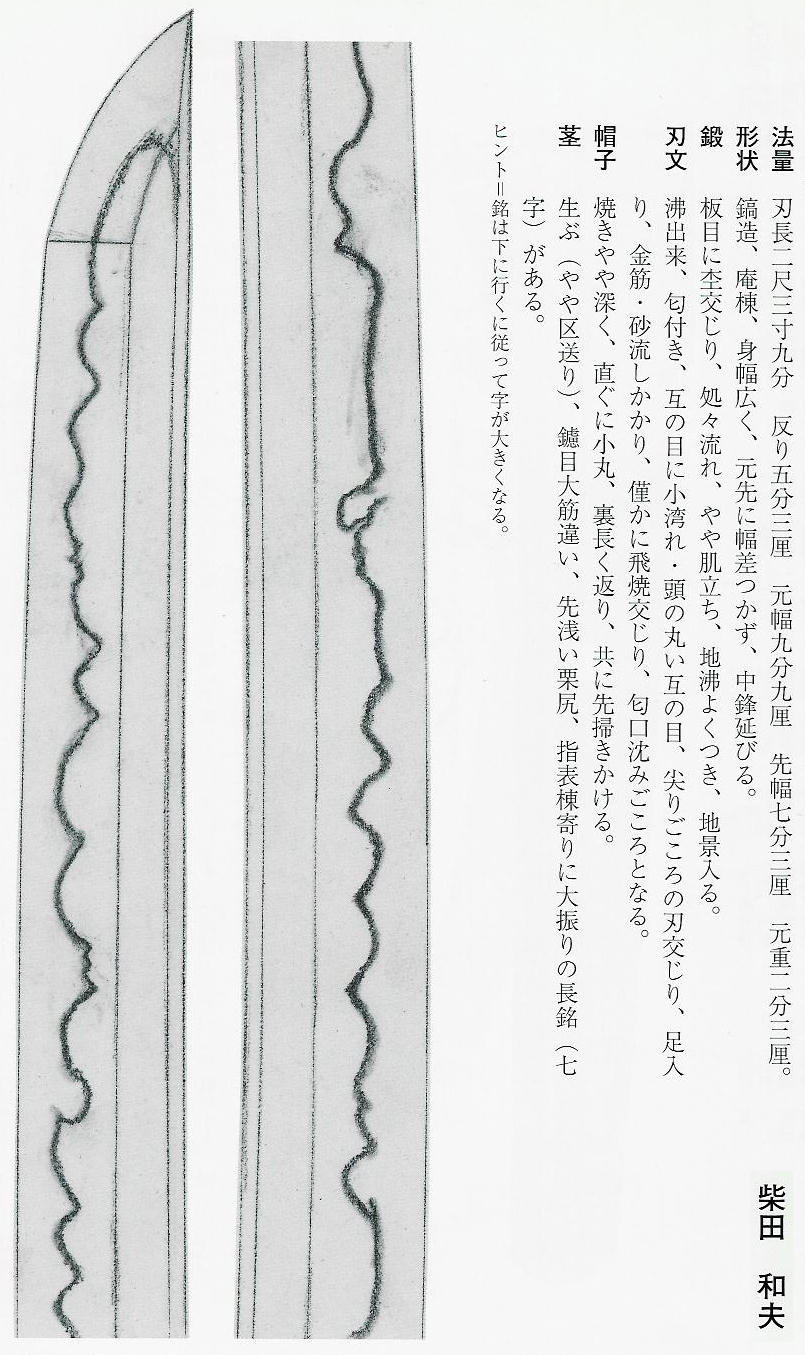 法量 刃長二尺三寸九分 反り五分三厘 元幅九分九厘 先幅七分三厘 元重二分三厘。
形状 鎬造、庵棟、身幅広く、元先に幅差つかず、中鋒延びる。
鍛 板目に杢交じり、処々流れ、やや肌立ち、地沸よくつき、地景入る。
刃文 沸出来、匂付き、互の目に小湾れ・頭の丸い互の目、尖りごころの刃交じり、足入
り、金筋・砂流しかかり、僅かに飛焼交じり、匂口沈みごころとなる。
帽子 焼きやや深く、直ぐに小丸、裏長く返り、共に先掃きかける。
茎 生ぶ（やや区送り）、鑢目大筋違い、先浅い栗尻、指表棟寄りに大振りの長銘（七
字）がある。
ヒント＝銘は下に行くに従って字が大きくなる。
柴田 和夫